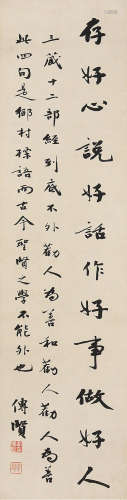 存好心說好話作好事做好人
三藏十二部經到底不外勸人為善和勸人勸人為善
此四句是鄉村標語而古今聖賢之學不能外也
傅賢